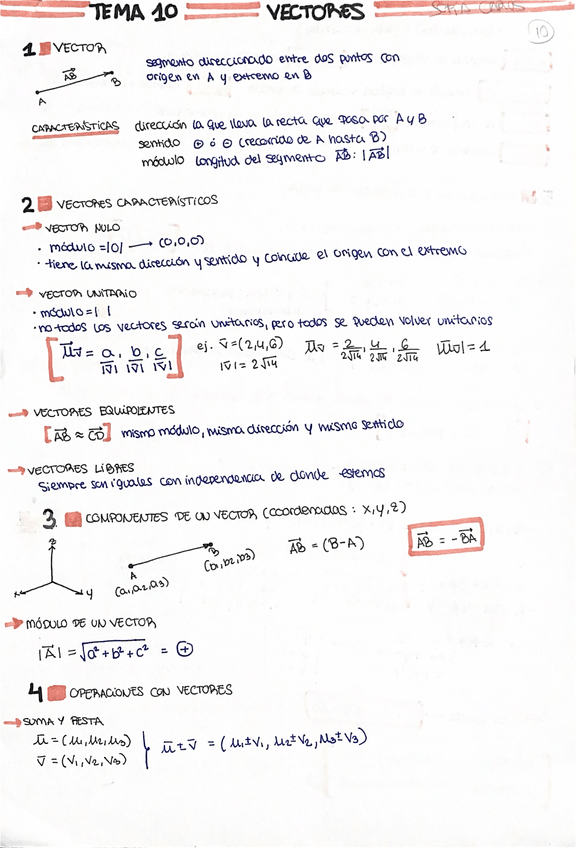 TEMA 10 VECTORES
10
1 VECTOR
segmento direccionado entre dos puntos con
origen en A y extremo en B
AB
A B
CARACTERÍSTICAS dirección la que lleva la recta que pasa por A y B
sentido ⊕ ó ⊖ (recorrido de A hasta B)
módulo longitud del segmento AB: |AB|
2 VECTORES CARACTERÍSTICOS
→ VECTOR NULO
· módulo = |0| → (0,0,0)
· tiene la misma dirección y sentido y coincide el origen con el extremo
→ VECTOR UNITARIO
· módulo = | |
· no todos los vectores serán unitarios, pero todos se pueden volver unitarios
[μv = a/|v|, b/|v|, c/|v|] ej. v=(2,4,6) μv = 2/2√14, 4/2√14, 6/2√14 |μv| = 1
|v| = 2√14
→ VECTORES EQUIPOLENTES
[AB ≈ CD] mismo módulo, misma dirección y mismo sentido
→ VECTORES LIBRES
Siempre son iguales con independencia de donde estemos
3 COMPONENTES DE UN VECTOR (coordenadas: x,y,z)
z
x y
A B
(a1,a2,a3) (b1,b2,b3)
AB = (B-A) AB = -BA
→ MÓDULO DE UN VECTOR
|A| = √a²+b²+c² = ⊕
4 OPERACIONES CON VECTORES
→ SUMA Y RESTA
u = (u1,u2,u3)
v = (v1,v2,v3)
u±v = (u1±v1, u2±v2, u3±v3)